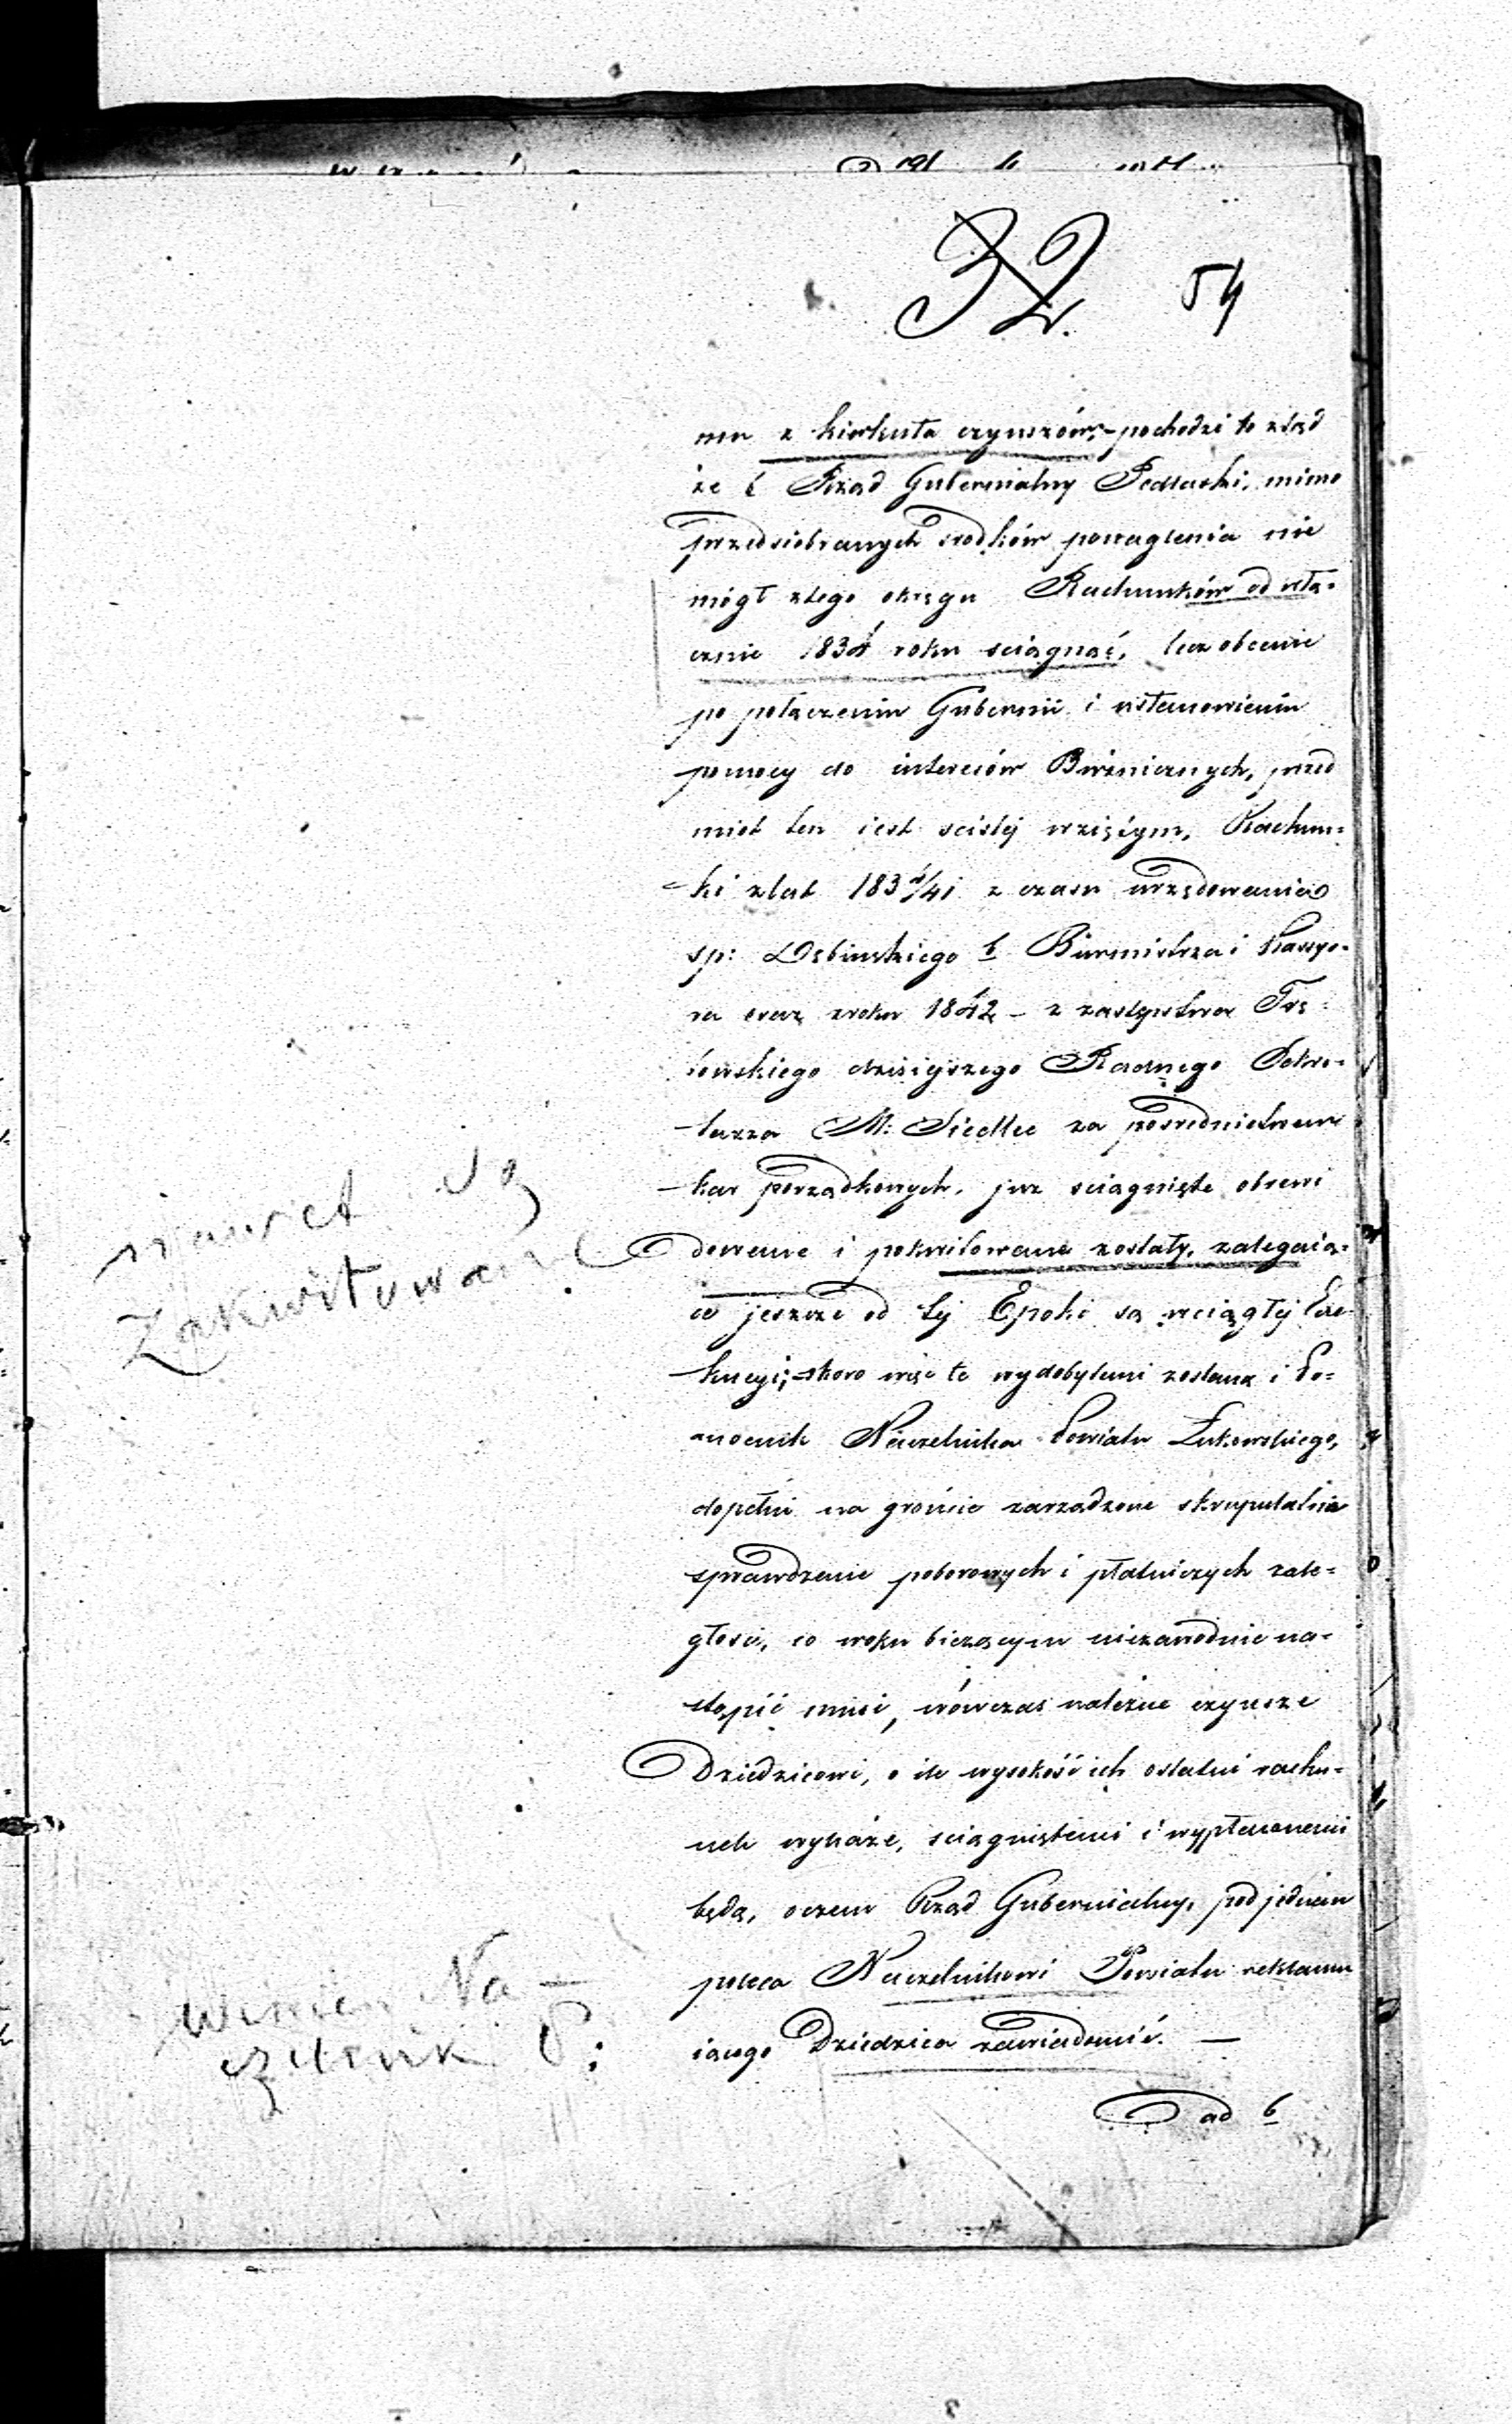 32. 54
mu z kirkuta czynszów, – pochodzi to ztąd
że b Rząd Gubernialny Podlaski, mimo
przedsiobranych srodków ponaglenia nie
mógł z tego okręgu Rachunków od włą-
cznie 1834 roku sciągnąć, lecz obecnie
po połączeniu Gubernii i ustanowieniu
pomocy do interesów Bóżniczych, przed
miot ten iest scisłej wziętym, Rachun=
ki z lat 1834/41 z czasu urzędowania
sp: Dębińskiego b Burmistrza i Kassye-
ra oraz z roku 1842 – z zastępstwa
dzisiejszego Radnego Sekre-
tarza M: Siedlec za posrednictwem
kar porządkowych, juz sciągnięte obrewi
dowane i pokwitowane zostały, zalegaią-
ce jeszcze od tej Epoki są w ciągłej Exe-
kucyi; – skoro więc te wydobytemi zostaną i Po=
mocnik Naczelnika Powiatu Łukowskiego,
dopełni na gróncie zarządzone skrupulatnie
sprawdzenie poborowych i płatniczych zale=
głości, co w roku bieżącym niezawodnie na=
stąpić musi, wówczas należne czynsze
Dziedzicowi, o ile wysokość ich ostatni rachu=
nek wykaże, sciągniętemi i wypłaconemi
będą, o czem Rząd Gubernialny, pod jednem
poleca Naczelnikowi Powiatu reklamu
iącego Dziedzica zawiadomić. —
ad 6
nawet są
Zakwitowane
winien Na –
czelnik P: